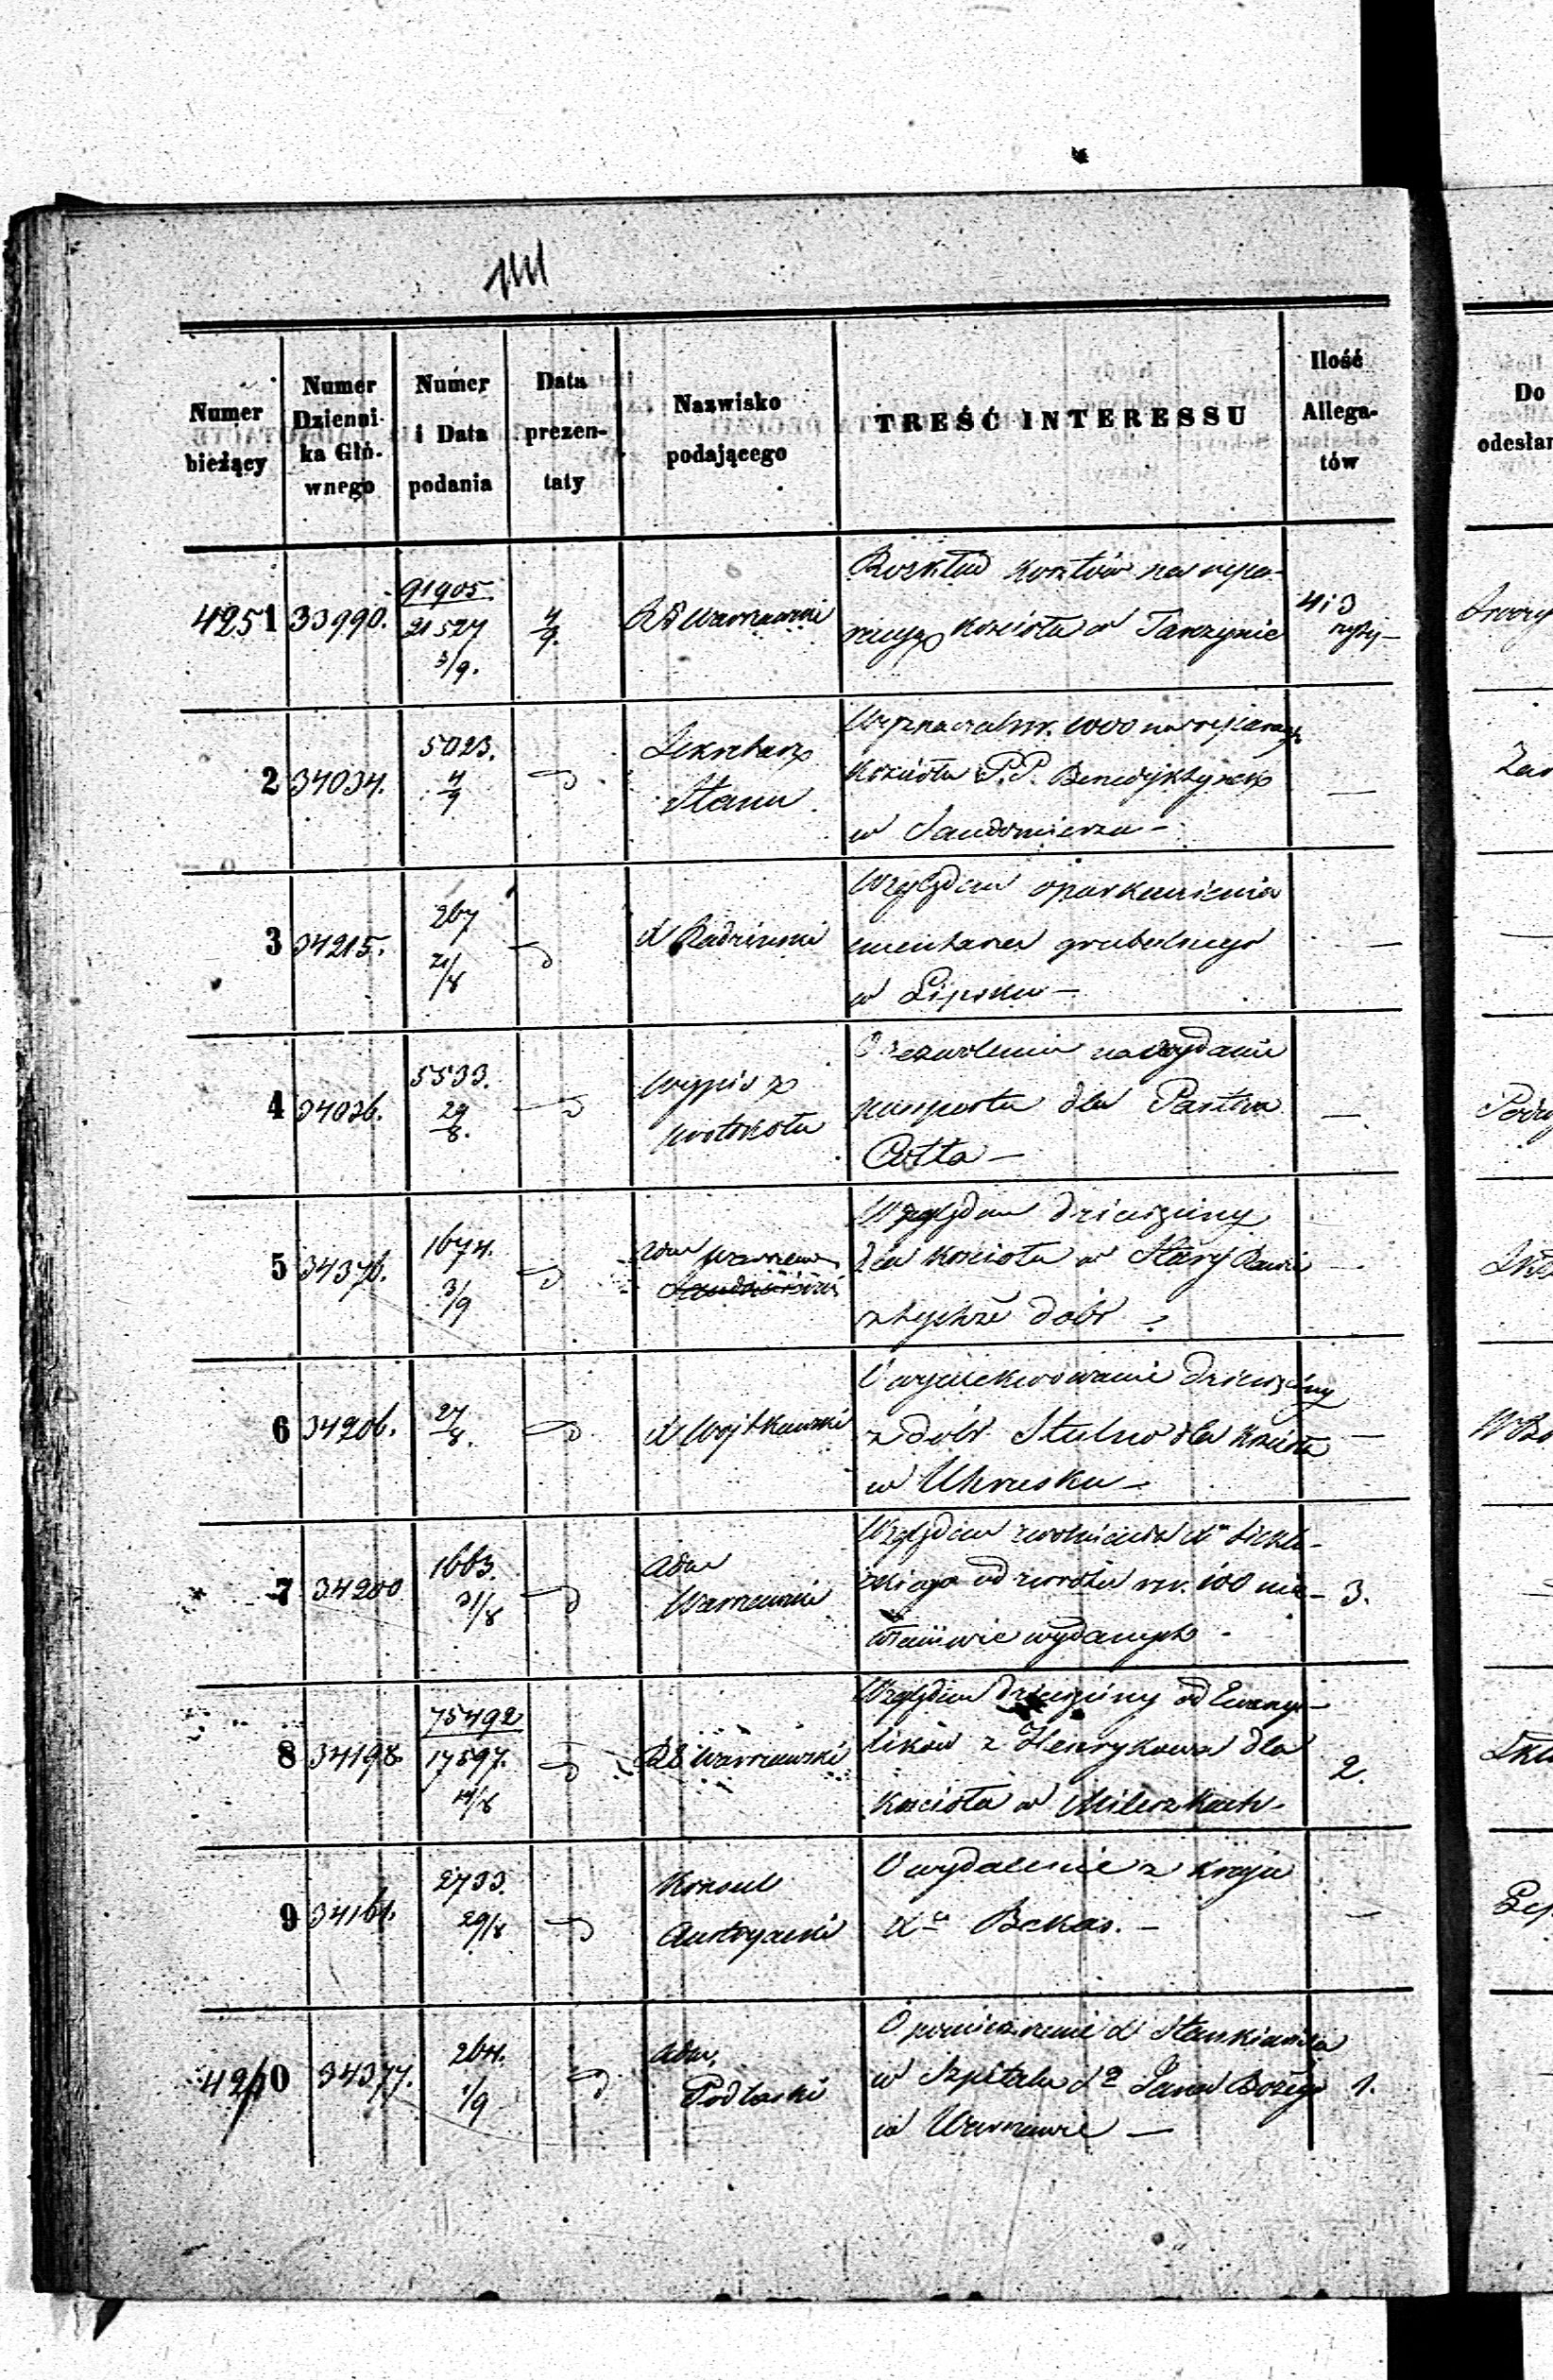 Numer bieżący
Numer Dzienni-ka Głó-wnego
Numer i Data podania
Data prezen-taty
Nazwisko podającego
TREŚĆ INTERESSU
Ilość Allega-tów
Do
odesłan
4251 33990. 91905. 21527 3/9. 4/9. RG Warszawski
Rozkład kosztów na repa-
racyą kościoła w Tarczynie
4 i 3
2 34034. 5023. 4/9 Sekretarz Stanu
Wyznacza rsr. 1000 na reparacyą
kościoła P.P. Benedyktynek
w Sandomierzu –
3 34215. 267 21/8 X Radziński
Względem oparkanienia
cmentarza grzebalnego
w Lipsku –
4 34036. 5533. 29/8. Wypis z protokołu
zezwolenia na wydanie
paszportu dla Pastora
Otto –
5 34376. 1674. 3/9 Adm Warszaw
Względem dziesięciny
dla kościoła w Stary Rawie
z tychże dóbr
6 34206. 27/8. X Wojtkowski
O wyexekwowanie dziesięciny
z dóbr Stulno dla kościoła
w Uhrusku –
7 34200 1663. 31/8 Adm Warszawski
Względem zwolnienia X
od zwrotu rsr. 100 nie-
właściwie wydanych –
3.
8 34198 75492 17597. 14/8 RG Warszawski
Względem dziesięciny od Ewang-
lików z Henrykowa dla
kościoła w Mileszkach –
2.
9 34161. 2733. 29/8 Konsul Austryacki
O wydalenie z kraju
Xa Bekas. –
4260 34377. 264. 1/9 Adm. Podlaski
O pomieszczenie X Stankiewicza
w Szpitalu Sgo Jana Bożego
w Warszawie –
1.